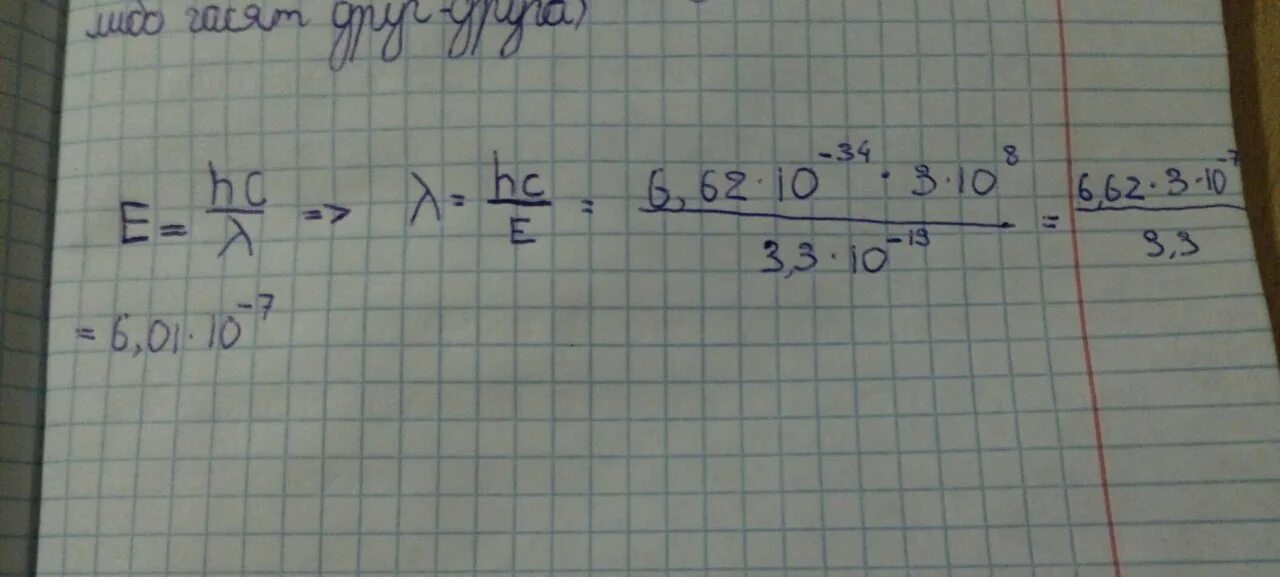 либо гасят друг-друга)
E = hc/λ => λ = hc/E = 6,62·10⁻³⁴ · 3·10⁸ / 3,3·10⁻¹⁹ = 6,62·3·10⁻⁷ / 3,3
= 6,01·10⁻⁷